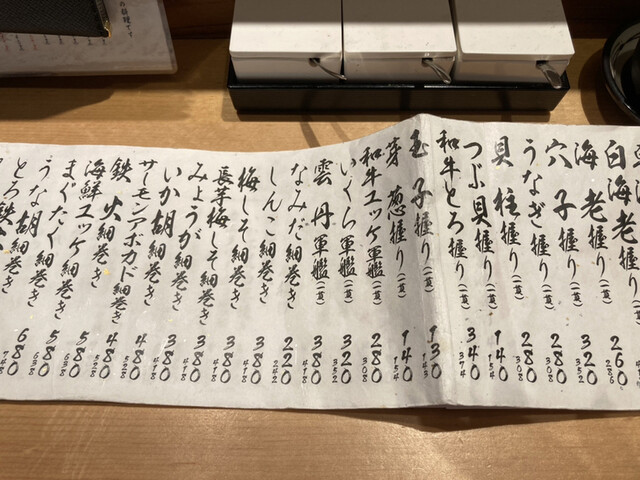 白海老握り(一貫)
海老握り(一貫) 260 286
穴子握り(一貫) 320 352
うなぎ握り(一貫) 280 308
貝柱握り(一貫) 280 308
つぶ貝握り(一貫) 140 154
和牛とろ握り(一貫) 340 374
玉子握り(一貫) 130 143
芽葱握り(一貫) 140 154
和牛ユッケ軍艦(一貫) 280 308
いくら軍艦(一貫) 320 352
雲丹軍艦(一貫) 380 418
なみだ細巻き 220 242
しんこ細巻き 380 418
梅しそ細巻き 380 418
長芋梅しそ細巻き 380 418
みょうが細巻き 380 418
いか胡細巻き 480 528
サーモンアボカド細巻き 480 528
鉄火細巻き 580 638
海鮮ユッケ細巻き 580 638
まぐたく細巻き 680 748
うな胡細巻き
とろ鉄